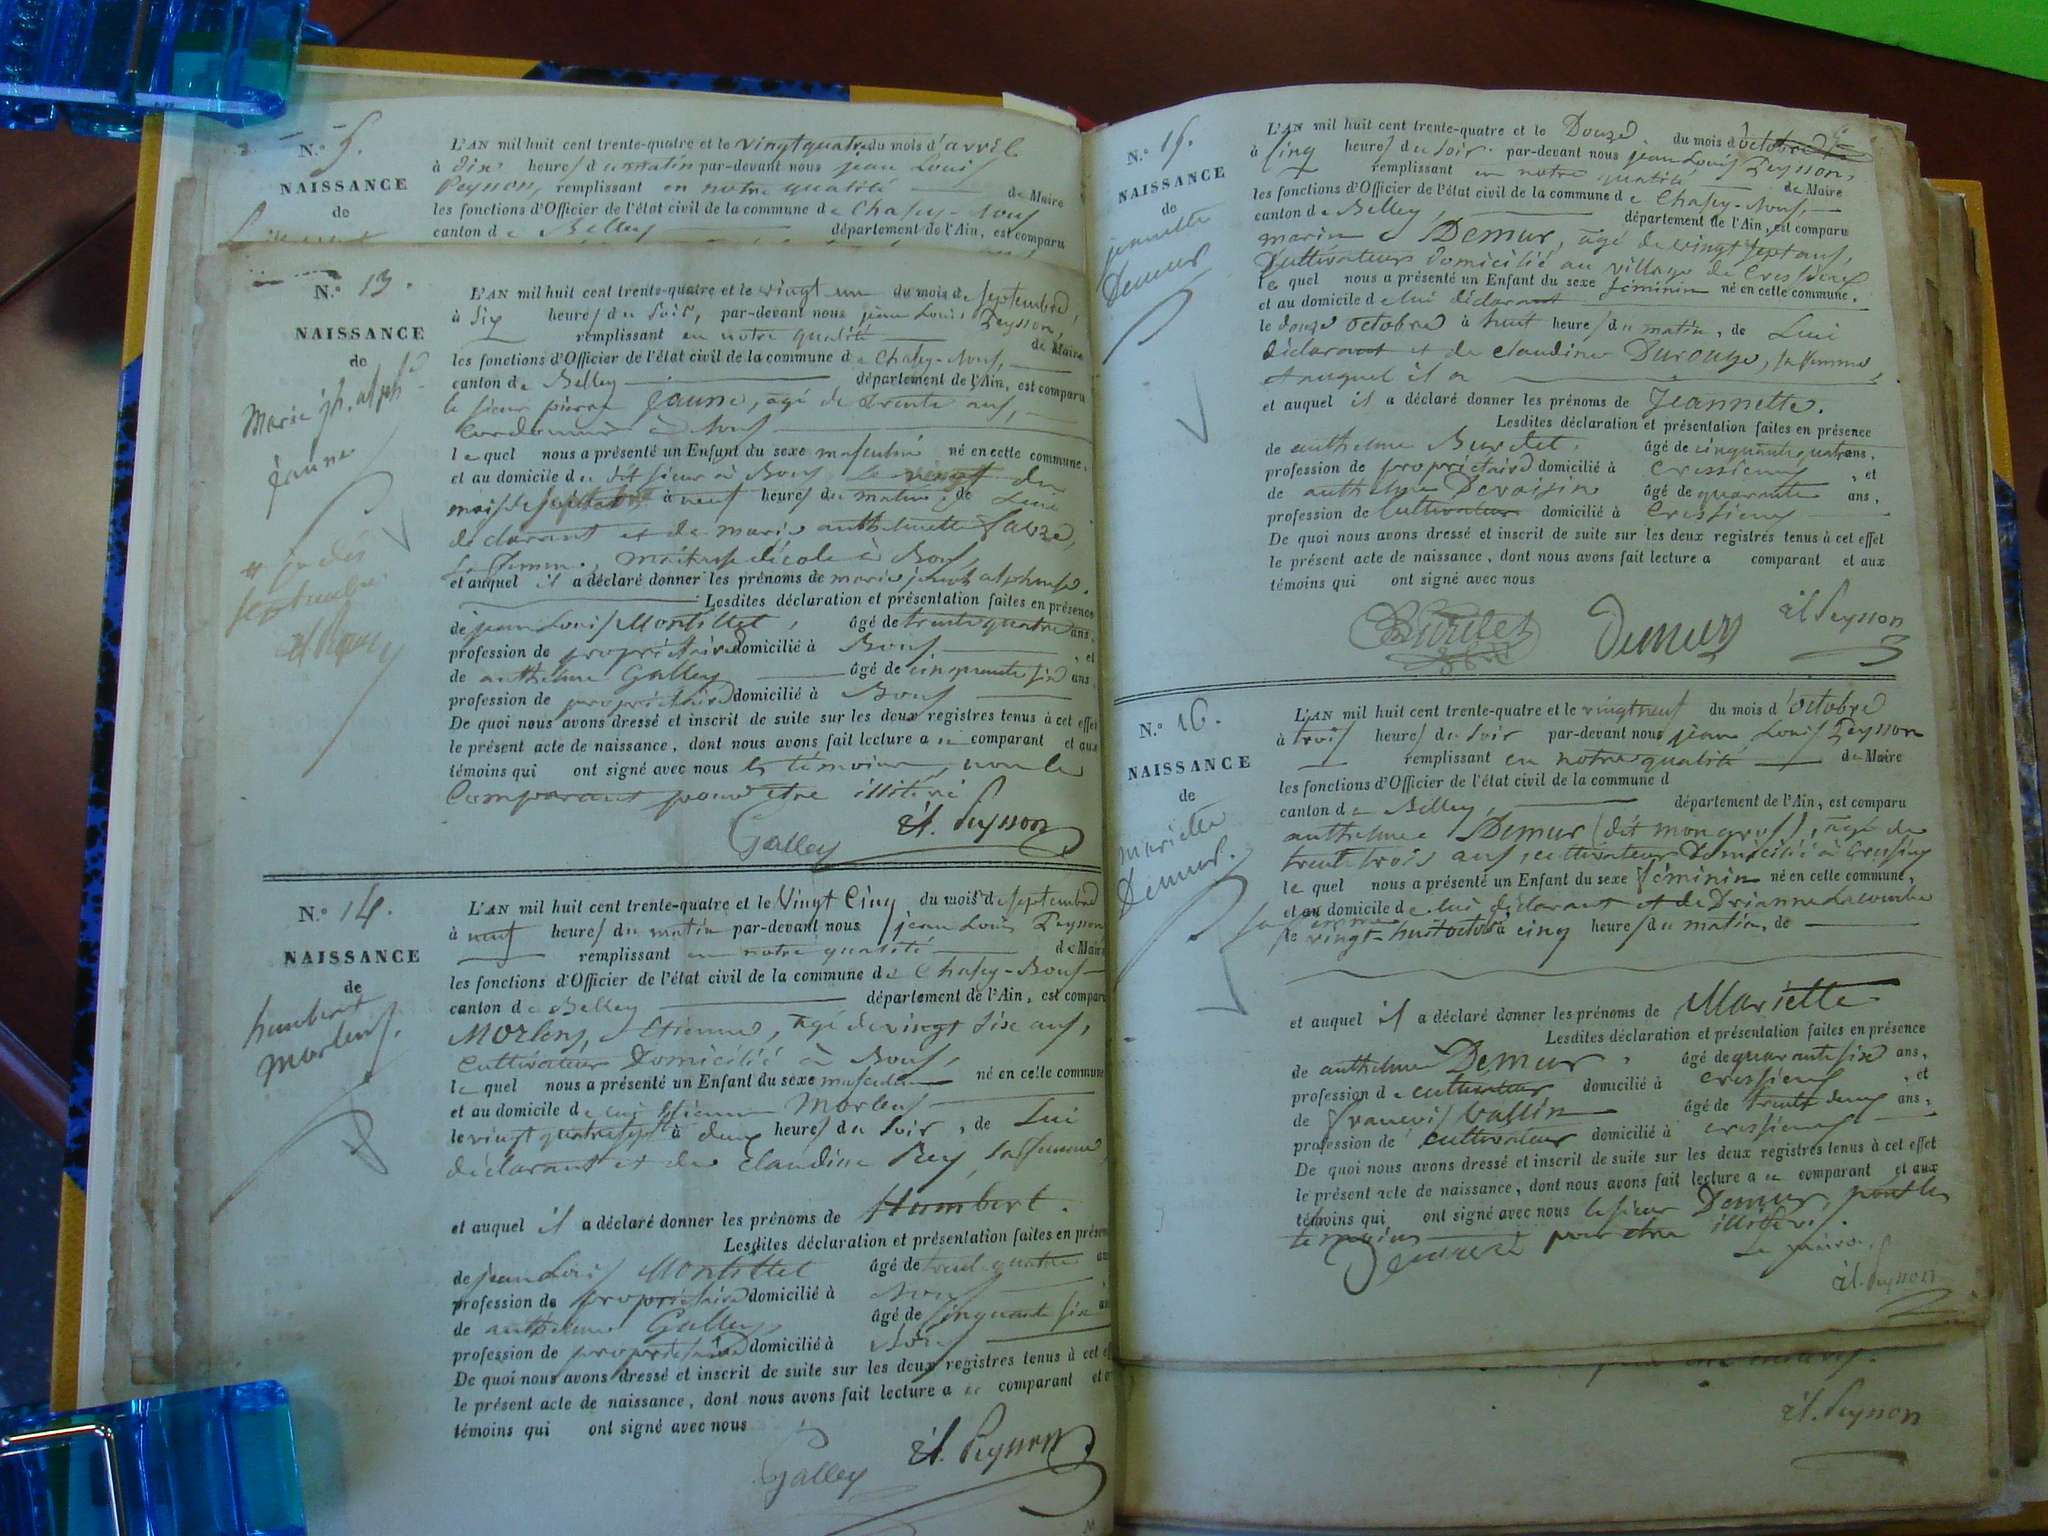 N.° 5.
NAISSANCE
de
L'AN mil huit cent trente-quatre et le vingt quatre du mois d'avril
à dix heures du matin par-devant nous jean Louis
Peysson, remplissant en notre qualité de Maire
les fonctions d'Officier de l'état civil de la commune de Chazey-Bons
canton de Belley département de l'Ain, est comparu
N.° 13.
NAISSANCE
de
Marie jh. alph.e
jeaune
L'AN mil huit cent trente-quatre et le vingt un du mois de septembre,
à six heures du soir, par-devant nous jean Louis Peysson,
remplissant en notre qualité de Maire
les fonctions d'Officier de l'état civil de la commune de Chazey-Bons,
canton de Belley département de l'Ain, est comparu
le sieur pierre jeaune, agé de trente ans,
cordonnier à Bons
lequel nous a présenté un Enfant du sexe masculin né en cette commune,
et au domicile du dit sieur à Bons le vingt du
mois de septembre à neuf heures du matin, de Lui
déclarant et de marie anthelmette
sa femme, maitresse d'école à Bons,
et auquel il a déclaré donner les prénoms de marie joseph alphonse.
Lesdites déclaration et présentation faites en présence
de jean Louis Montillet, âgé de trente quatre ans,
profession de propriétaire domicilié à Bons, et
de anthelme Galley âgé de cinquante six ans,
profession de propriétaire domicilié à Bons
De quoi nous avons dressé et inscrit de suite sur les deux registres tenus à cet effet
le présent acte de naissance, dont nous avons fait lecture au comparant et aux
témoins qui ont signé avec nous les témoins, non le
Comparant pour être illitéré
Galley jl. Peysson
N.° 14.
NAISSANCE
de
humbert
Morlens.
L'AN mil huit cent trente-quatre et le Vingt Cinq du mois de septembre
à neuf heures du matin par-devant nous jean Louis Peysson
remplissant en notre qualité de Maire
les fonctions d'Officier de l'état civil de la commune de Chazey-Bons
canton de Belley département de l'Ain, est comparu
Morlens, Etienne, agé de vingt six ans,
Cultivateur Domicilié à Bons,
lequel nous a présenté un Enfant du sexe masculin né en cette commune
et au domicile de lui Etienne Morlens
le vingt quatre sept. à deux heures du soir, de Lui
déclarant et de claudine Rey, sa femme,
et auquel il a déclaré donner les prénoms de Humbert.
Lesdites déclaration et présentation faites en présence
de jean Louis Montillet âgé de trente quatre ans
profession de propriétaire domicilié à Bons
de anthelme Galley âgé de cinquante six ans
profession de propriétaire domicilié à Bons
De quoi nous avons dressé et inscrit de suite sur les deux registres tenus à cet effet
le présent acte de naissance, dont nous avons fait lecture au comparant et aux
témoins qui ont signé avec nous
Galley jl. Peysson
N.° 15.
NAISSANCE
de
jeannette
Demur
L'AN mil huit cent trente-quatre et le Douze du mois d'octobre
à Cinq heures du soir par-devant nous jean Louis Peysson,
remplissant en notre qualité de Maire
les fonctions d'Officier de l'état civil de la commune de Chazey-Bons,
canton de Belley, département de l'Ain, est comparu
marin Demur, agé de vingt sept ans,
Cultivateur domicilié au village de Cressieux
lequel nous a présenté un Enfant du sexe féminin né en cette commune,
et au domicile de lui déclarant
le douze octobre à huit heures du matin, de Lui
déclarant et de claudine Durouze, sa femme,
et auquel il a
et auquel il a déclaré donner les prénoms de Jeannette.
Lesdites déclaration et présentation faites en présence
de anthelme Burdet, âgé de cinquante quatre ans,
profession de propriétaire domicilié à Cressieux, et
de anthelme Devoisin âgé de quarante ans,
profession de Cultivateur domicilié à Cressieux
De quoi nous avons dressé et inscrit de suite sur les deux registres tenus à cet effet
le présent acte de naissance, dont nous avons fait lecture a comparant et aux
témoins qui ont signé avec nous
Burdet Demur jl Peysson
N.° 16.
NAISSANCE
de
mariette
Demur.
L'AN mil huit cent trente-quatre et le vingt neuf du mois d'octobre
à trois heures du soir par-devant nous jean Louis Peysson
remplissant en notre qualité de Maire
les fonctions d'Officier de l'état civil de la commune d
canton de Belley, département de l'Ain, est comparu
anthelme Demur (dit mongros), agé de
trente trois ans, cultivateur Domicilié à Cressieux
lequel nous a présenté un Enfant du sexe féminin né en cette commune,
et au domicile de lui déclarant et de Drianne Lacombe
sa femme
le vingt-huit octobre à cinq heures du matin, de
et auquel il a déclaré donner les prénoms de Mariette
Lesdites déclaration et présentation faites en présence
de anthelme Demur, âgé de quarante six ans,
profession de cultivateur domicilié à cressieux, et
de francois Vallin âgé de trente deux ans,
profession de cultivateur domicilié à cressieux
De quoi nous avons dressé et inscrit de suite sur les deux registres tenus à cet effet
le présent acte de naissance, dont nous avons fait lecture au comparant et aux
témoins qui ont signé avec nous le sieur Demur,
témoins pour être illitérés.
Le maire,
jl. Peysson
jl. Peysson